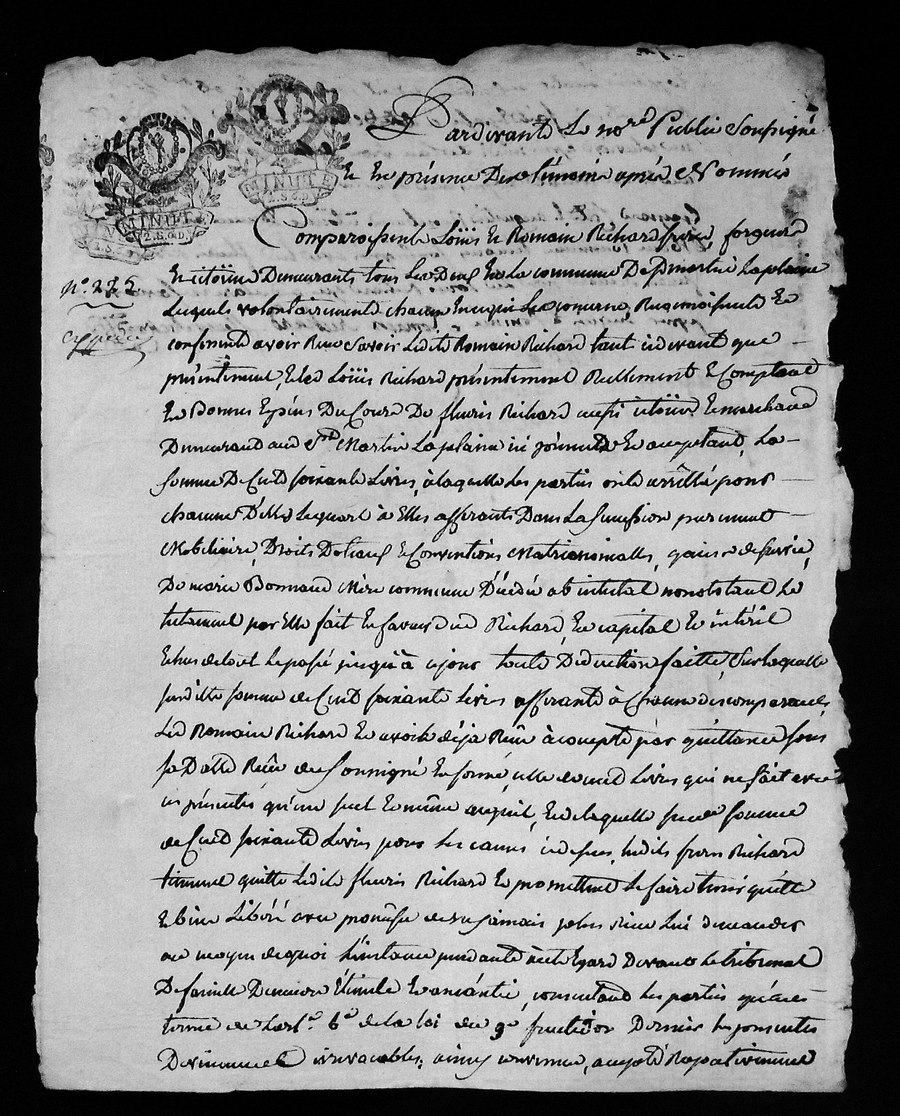 MINUTE
2.S.6D.
MINUTE
2.S.6D.
N.o 275
Pardevant Le no.re Public Soussigné
Et En présence Des témoins après Nommés
Comparoissent Loüis Et Romain Richard freres forgeurs
Et citoïens Demeurants tous Les Deux En La commune De St martin La plaine
Lesquels volontairement chacun En ce qui Les concerne, Reconnoissent Et
confessent avoir Reçu Savoir Ledit Romain Richard tant cidevant que
présentement, Et Led Loüis Richard présentement Reellement Et Comptant
En Bonnes Espéces Du Cours De fleuris Richard aussi citoïen Et marchand
Demeurand aud St Martin La plaine ici présent Et acceptant, La
somme De Cent soixante Livres, à laquelle Les parties ont arrêtté pour
chacune D'Elles Le quart à Elles afferants Dans La Succession purement
Mobiliaire, Droits Dotaux Et Conventions Matrimonialles, gains de survie,
De marie Bonnand Mère commune Décédée ab intestat nonobstant Le
testament par Elle fait En faveur dud Richard, En capital Et intérêt
Echus de tout Le passé jusqu'à ce jour toute Déduction faitte, Sur laquelle
susditte somme de Cent soixante Livres afferante à Chacun des comparants,
Led Romain Richard En avoit déja Reçu à compte par quittance sous
sa Datte Reçue du Soussigné En forme, celle de cent Livres qui ne fait avec
ces présentes qu'un seul Et même acquit, Et de laquelle susd somme
de Cent soixante Livres pour Les causes cidessus, Lesdits freres Richard
tiennent quitte Ledit fleuris Richard Et promettent Le faire tenir quitte
Et bien Libéré avec promesse de ne jamais plus Rien Lui demander
au moyen de quoi L'instance pendante à cet Egard Devant Le tribunal
De famille Demeure Éteinte Et anéantie, consentant Les parties qu'aux
terme de L'art.e 6.e de La Loi du 9.e fructidor Dernier Les présentes
Deviennent irrévocables; ainsi convenu, accepté Respectivement